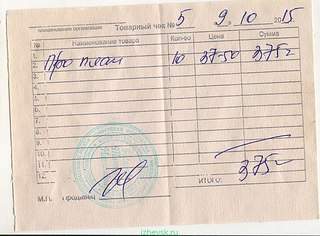 наименование организации
Товарный чек № 5 9. 10 2015
№ Наименование товара Кол-во Цена Сумма
1.
2. 10 37-50 375-
3.
4.
5.
6.
7.
8.
9.
10.
11.
12.
ИТОГО: 375-
М.П.
izhevsk.ru